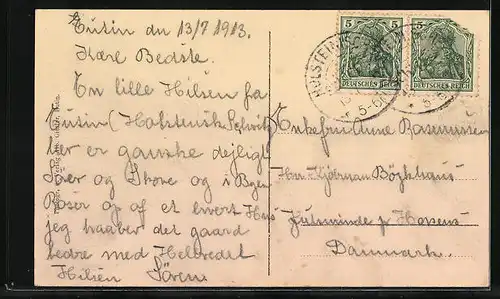 Eutin d 13/7 1913.
Kære Bedste.
En lille Hilsen fra
Eutin (Holstensk Schweiz
her er ganske dejligt
Søer og Skove og i Byen
Roser op af et hvert Hus
jeg haaber det gaar
bedre med Helbredet
Hilsen Søren
5 5
DEUTSCHES REICH
5
DEUTSCHES REICH
5-6
5-6
Enkefru Anne Rasmussen
Hr.
Juelsminde pr Horsens
Danmark.